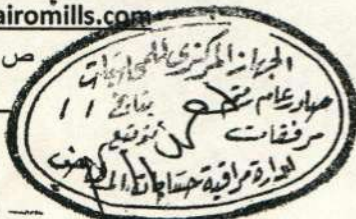 airomills.com
ص
الجهاز المركزى للمحاسبات
صادر عام
بتاريخ / /
مرفقات
توقيع
ادارة مراقبة حسابات